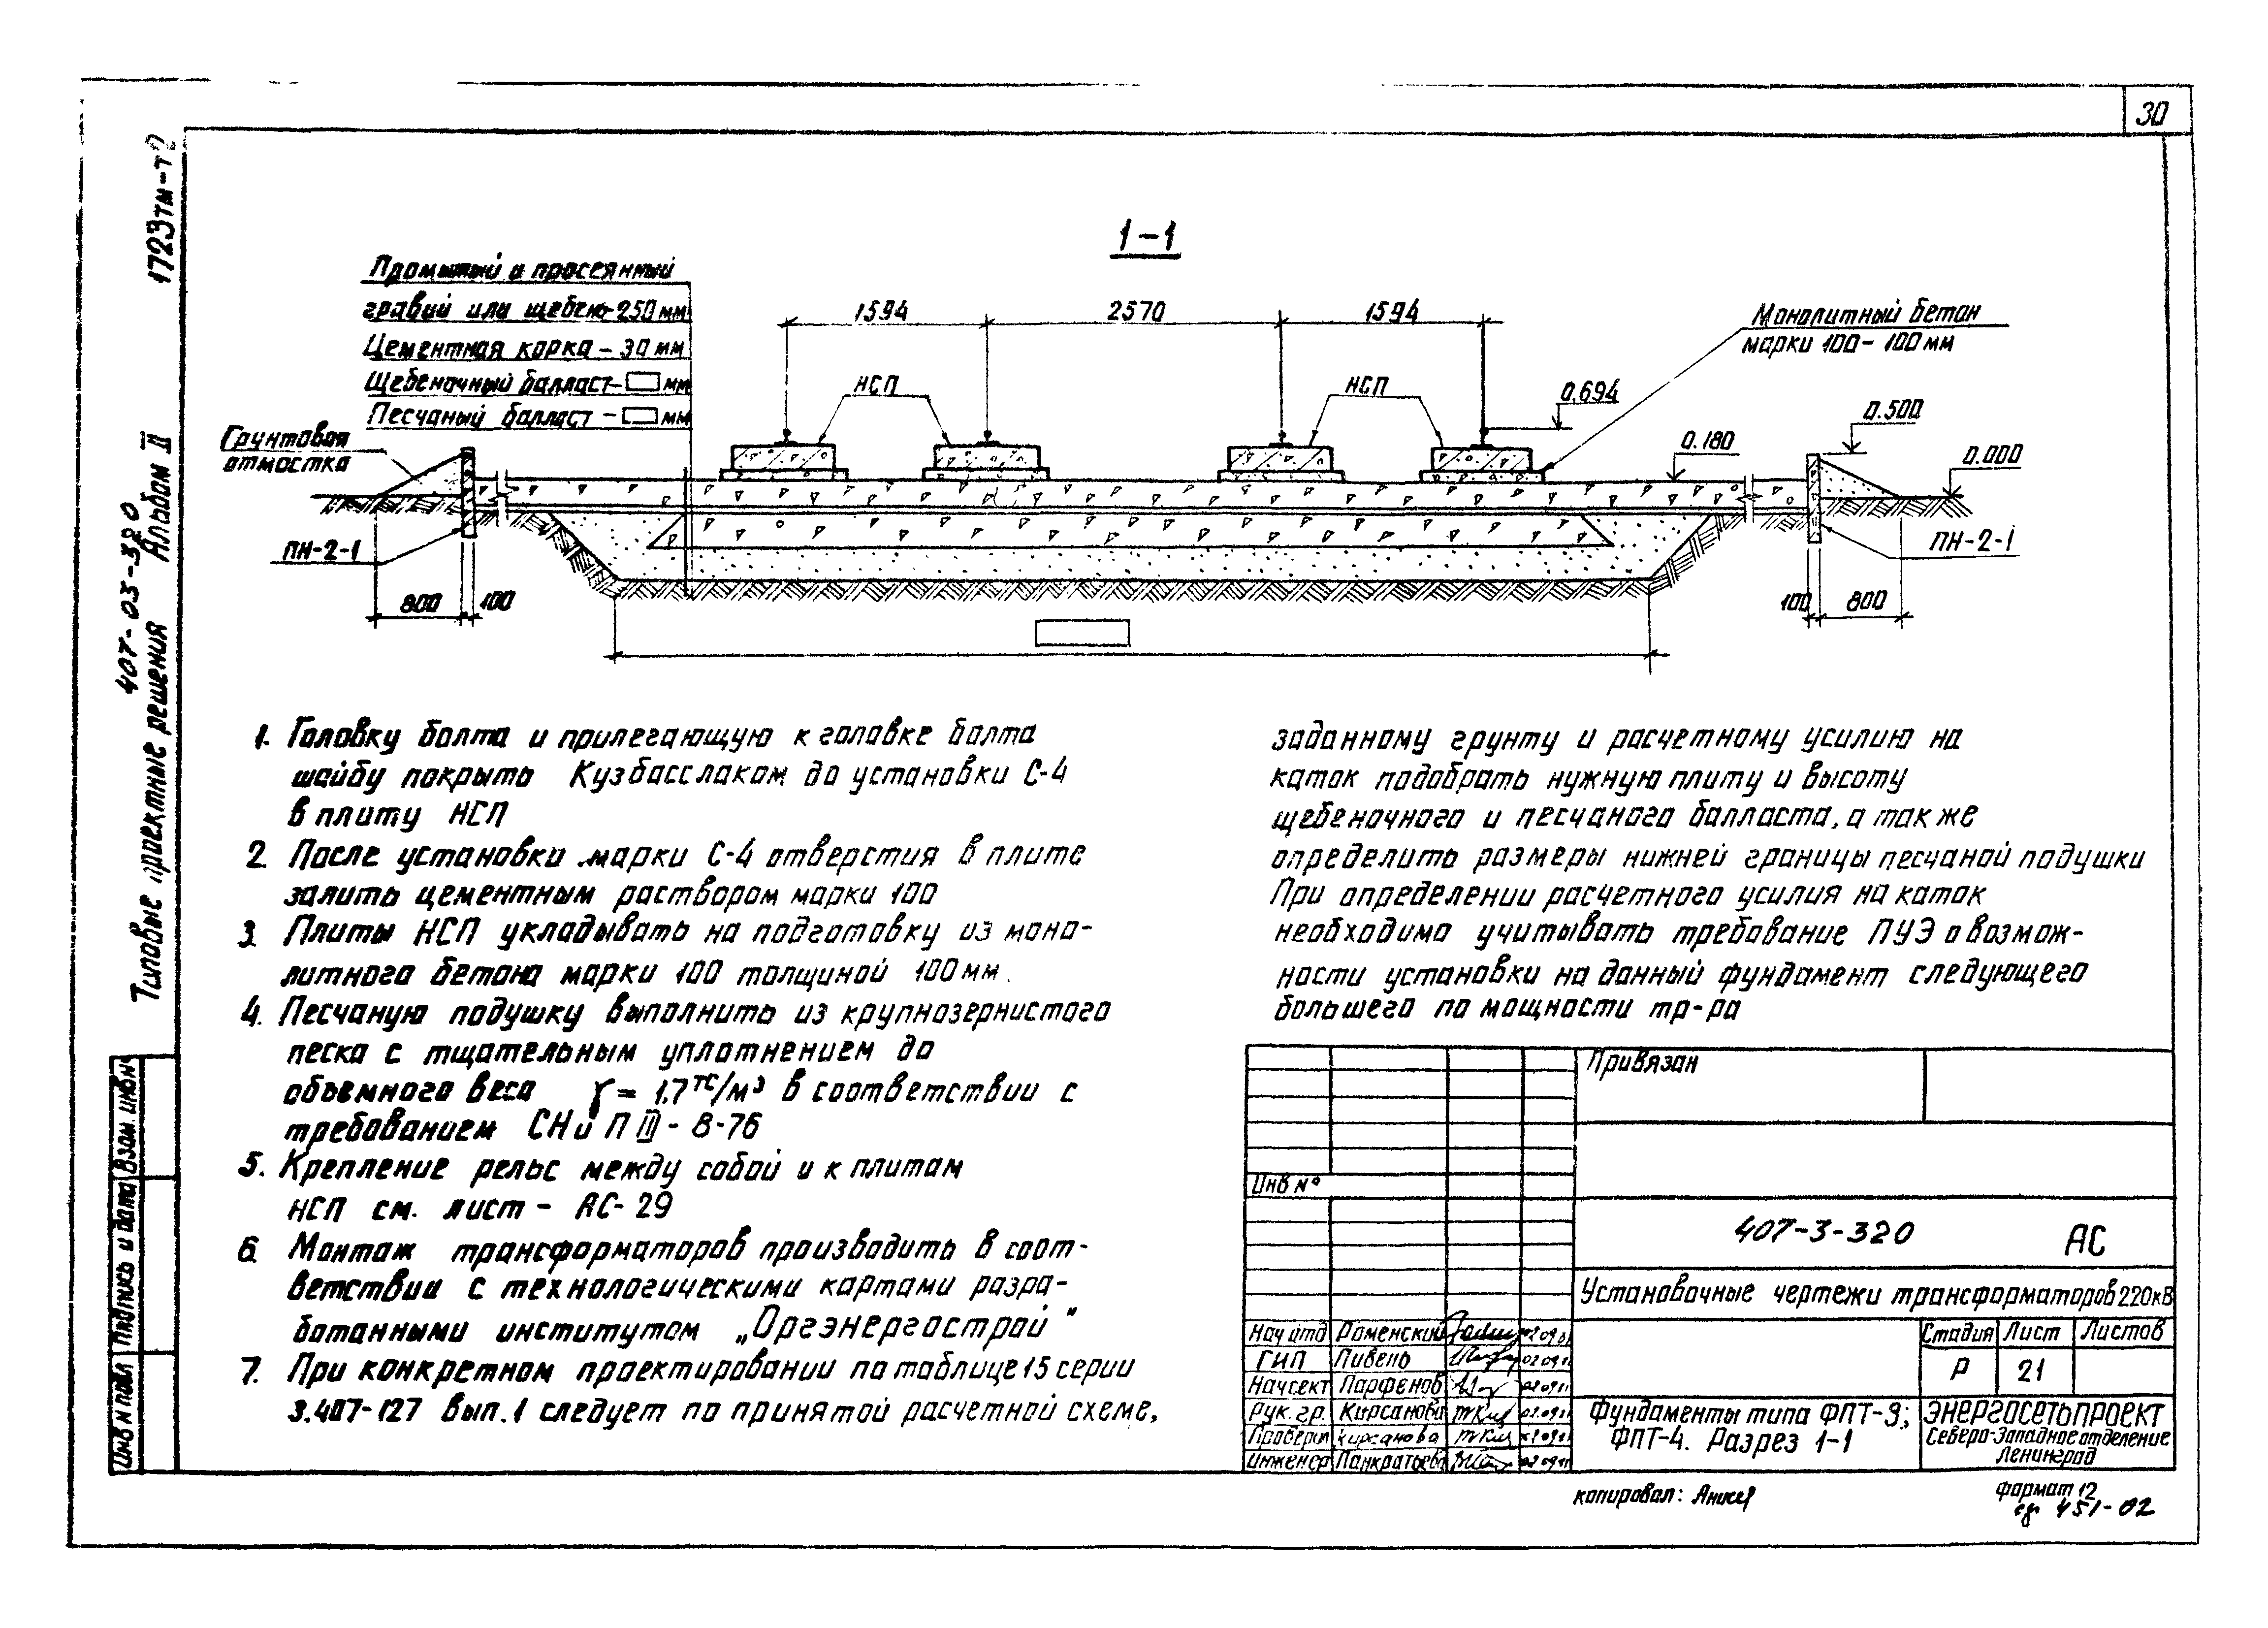 30
1723тм-т2
407-03-320
Типовые проектные решения Альбом II
1-1
Промытый и просеянный
гравий или щебень-250 мм
Цементная корка - 30 мм
Щебеночный балласт- мм
Песчаный балласт - мм
Грунтовая
отмостка
ПН-2-1
800
100
1594
2570
1594
НСП
НСП
Монолитный бетон
марки 100- 100 мм
0.694
0.180
0.500
0.000
ПН-2-1
100
800
1. Головку болта и прилегающую к головке болта
шайбу покрыть Кузбасслаком до установки С-4
в плиту НСП
2 После установки марки С-4 отверстия в плите
залить цементным раствором марки 100
3. Плиты НСП укладывать на подготовку из моно-
литного бетона марки 100 толщиной 100 мм.
4. Песчаную подушку выполнить из крупнозернистого
песка с тщательным уплотнением до
объемного веса γ = 1.7 тс/м³ в соответствии с
требованием СНиП III - 8-76
5. Крепление рельс между собой и к плитам
НСП см. лист - АС- 29
6. Монтаж трансформаторов производить в соот-
ветствии с технологическими картами разра-
ботанными институтом „Оргэнергострой"
7. При конкретном проектировании по таблице 15 серии
3.407-127 вып. 1 следует по принятой расчетной схеме,
заданному грунту и расчетному усилию на
каток подобрать нужную плиту и высоту
щебеночного и песчаного балласта, а так же
определить размеры нижней границы песчаной подушки
При определении расчетного усилия на каток
необходимо учитывать требование ПУЭ о возмож-
ности установки на данный фундамент следующего
большего по мощности тр-ра
Привязан
Инв №
407-3-320 АС
Установочные чертежи трансформаторов 220кВ
Нач отд Роменский
ГИП Пивень
Нач сект Парфенов
Рук. гр. Кирсанова
Проверил Кирсанова
Инженер Панкратьева
Стадия Лист Листов
Р 21
Фундаменты типа ФПТ-3;
ФПТ-4. Разрез 1-1
ЭНЕРГОСЕТЬПРОЕКТ
Северо-Западное отделение
Ленинград
Инв № подл Подпись и дата Взам. инв №
копировал:
формат 12
451-02